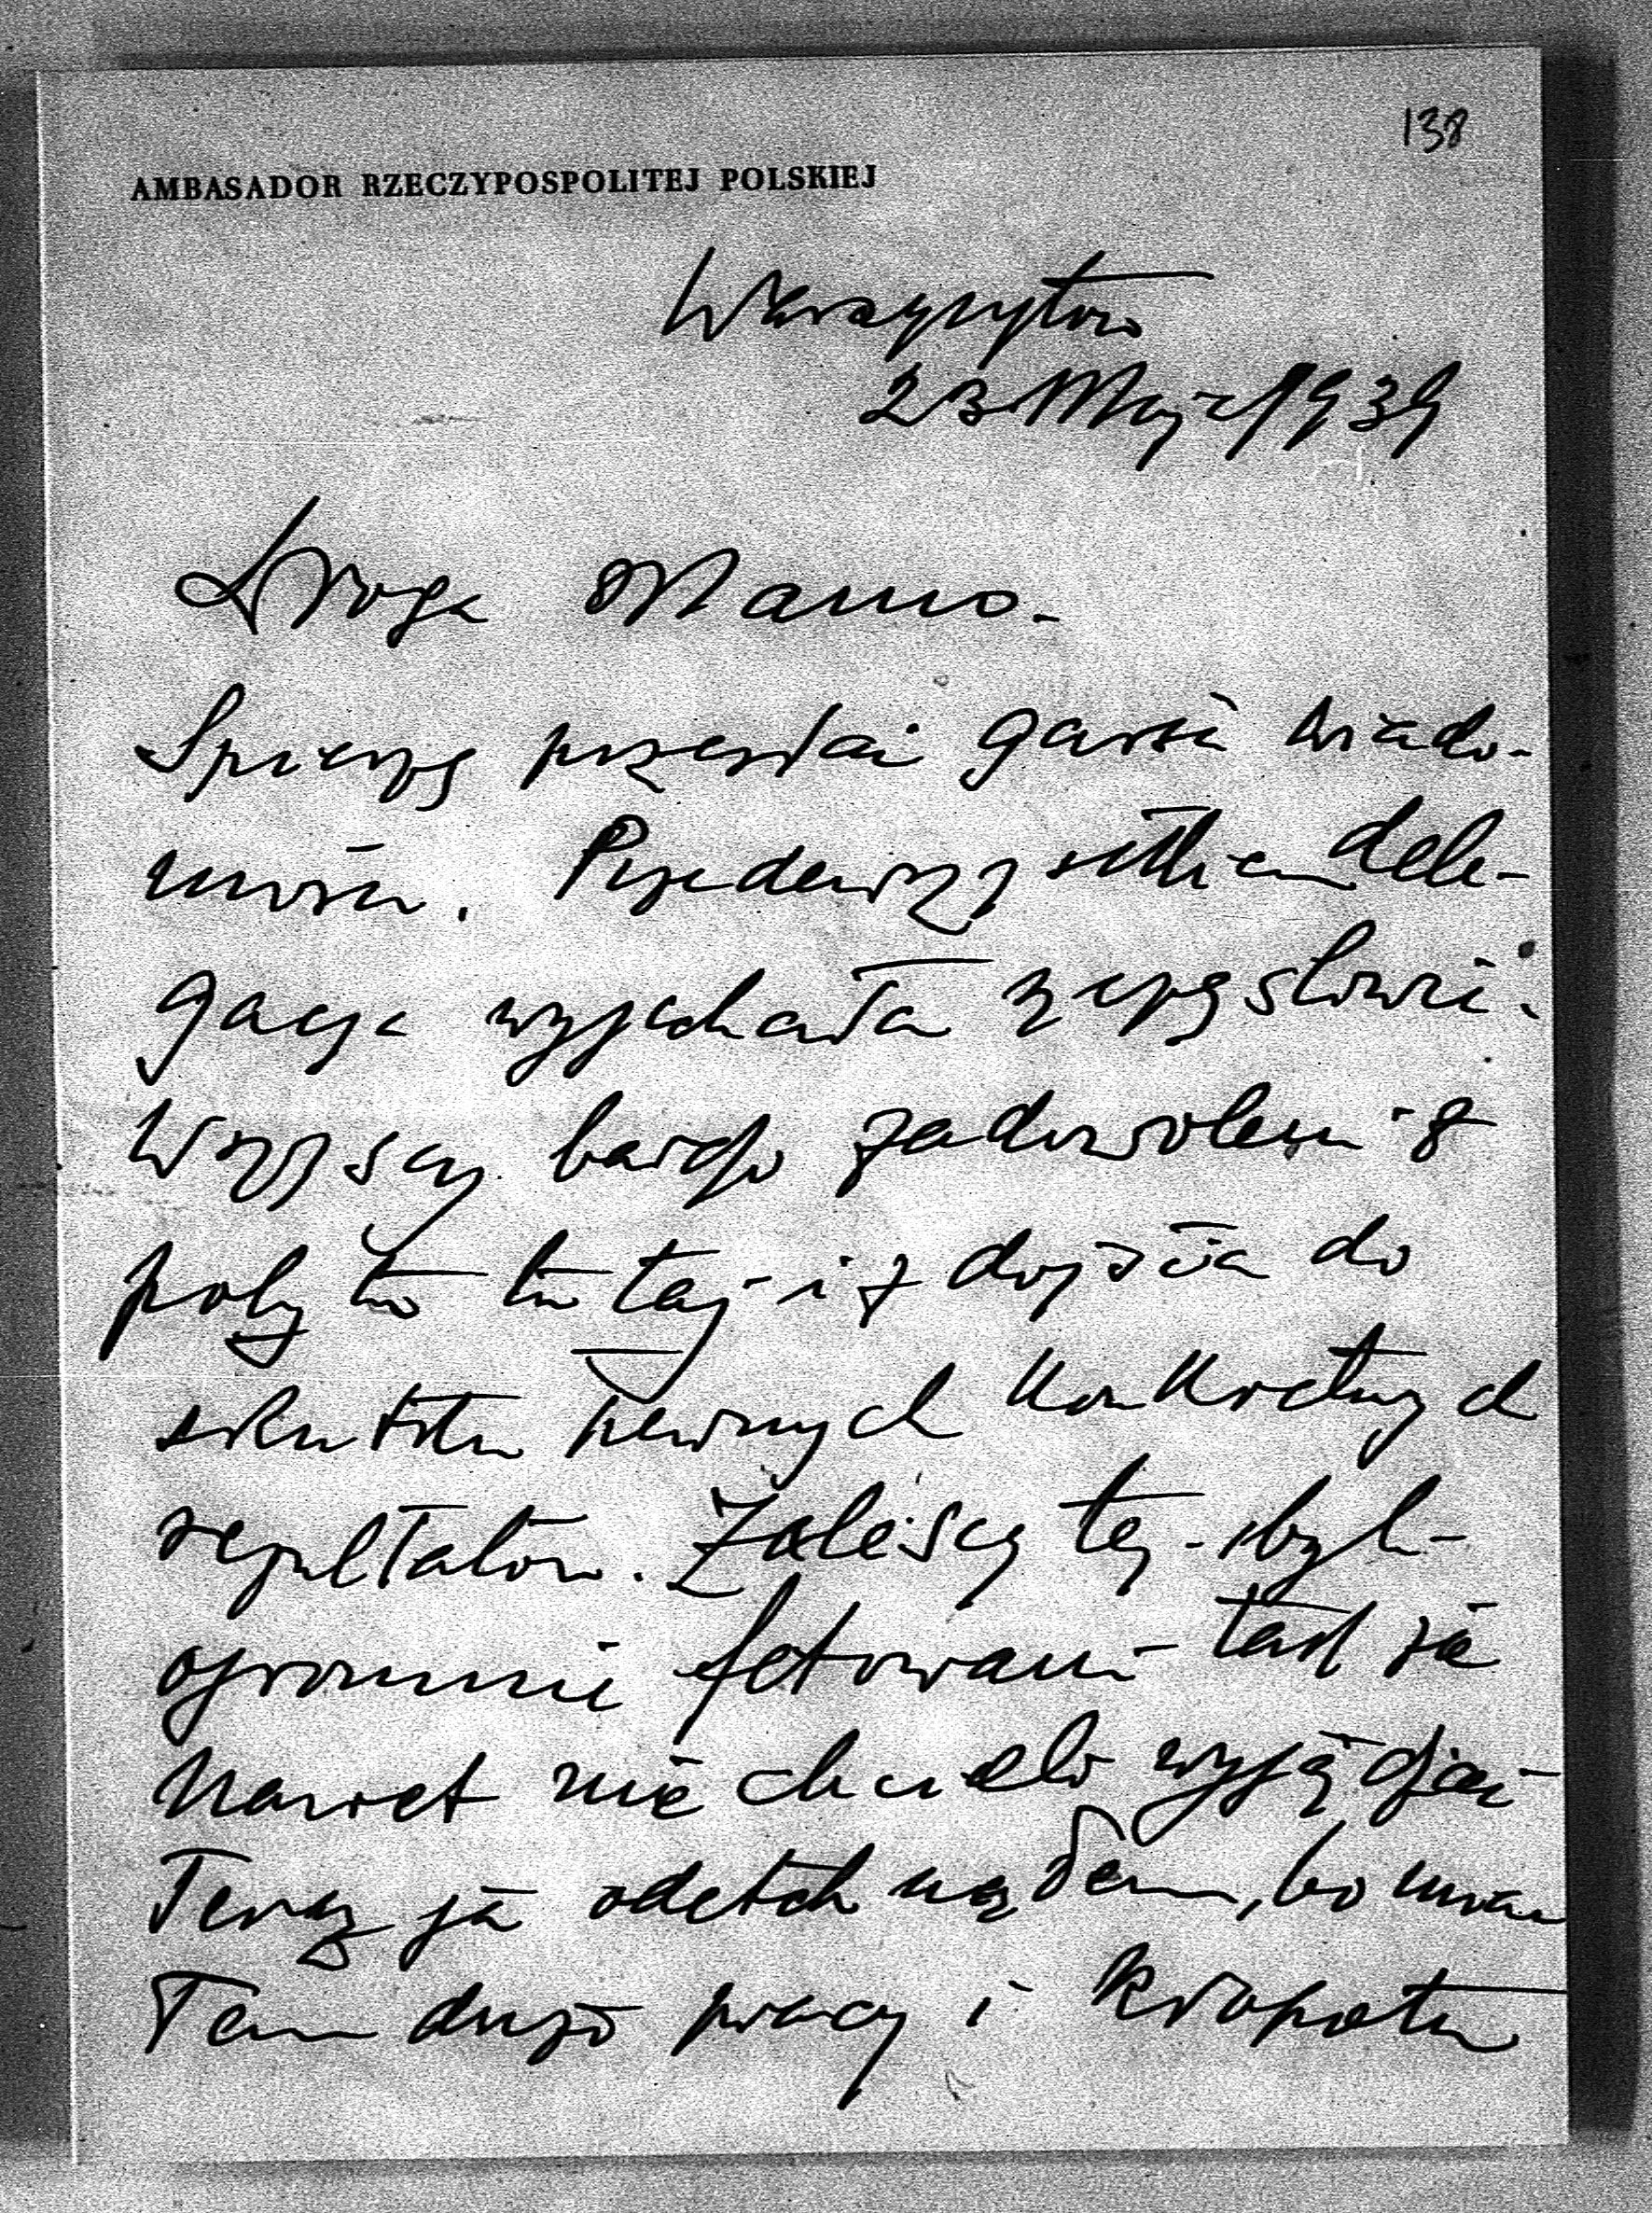 138
AMBASADOR RZECZYPOSPOLITEJ POLSKIEJ
Waszyngton
23 Maja 1939
Droga Mamo.
Spieszę przesłać garść wiado-
mości. Przedewszystkiem dele-
gacja wyjechała szczęśliwie.
Wszyscy bardzo zadowoleni z
pobytu tutaj i z dojścia do
skutku pewnych konkretnych
rezultatów. Zalescy też byli
ogromnie fetowani tak że
nawet nie chcieli wyjeżdżać
Teraz ja odetchnąłem, bo mia-
łem dużo pracy i kłopotu